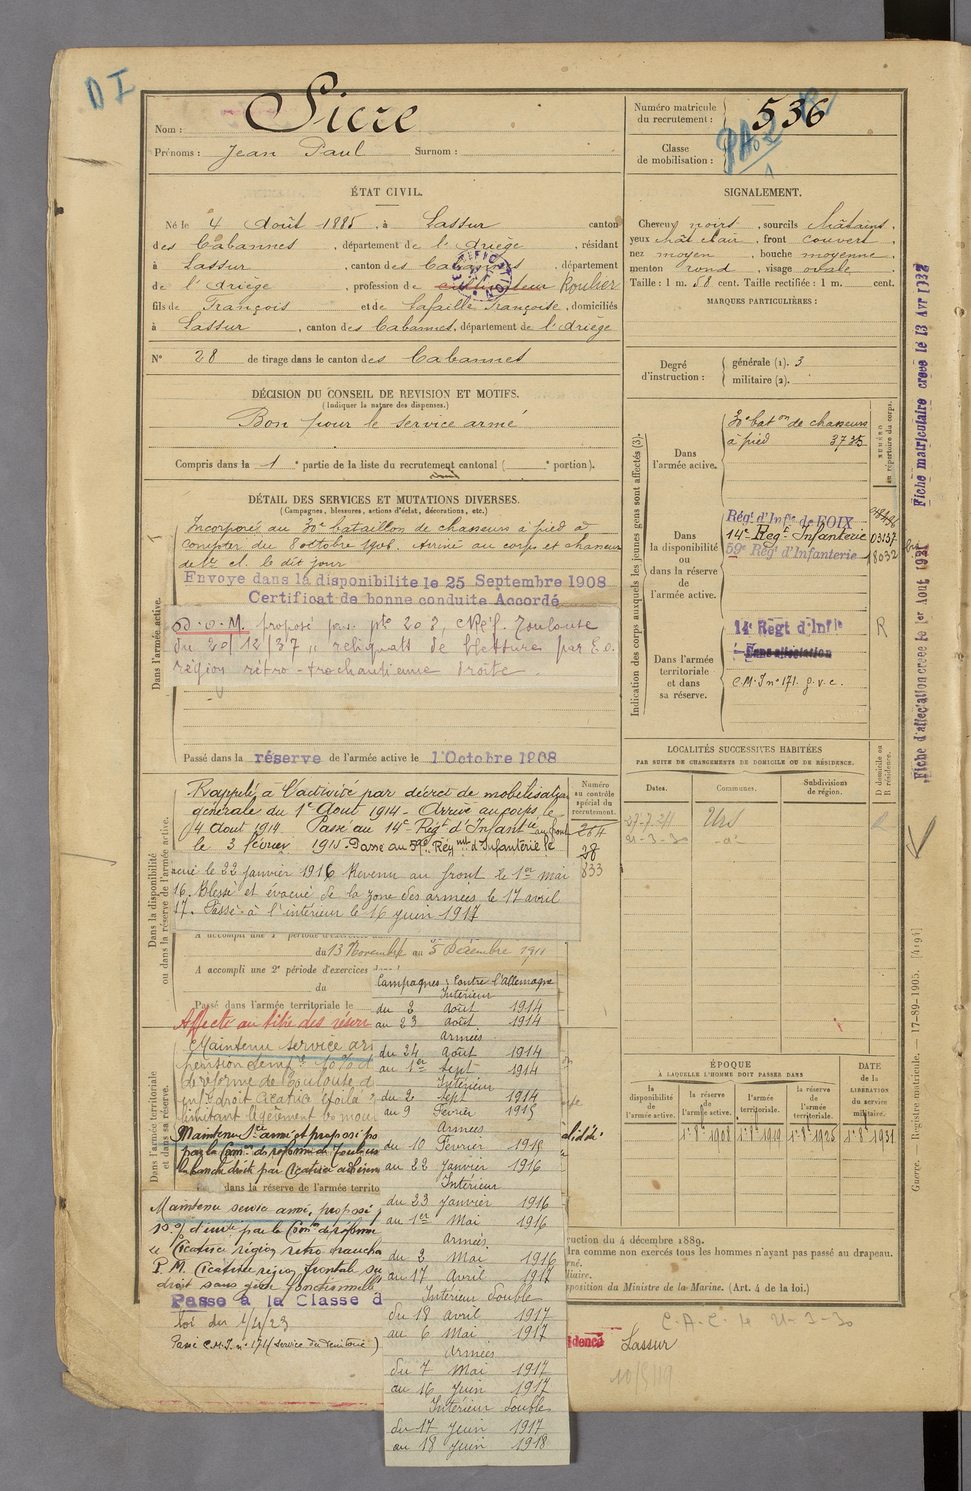 D I
Nom : Sicre
Prénoms : Jean Paul Surnom :
Numéro matricule du recrutement : 536
Classe de mobilisation :
ÉTAT CIVIL.
Né le 4 Août 1885, à Lassur canton
des Cabannes, département de l'Ariège, résidant
à Lassur, canton des Cabannes, département
de l'Ariège, profession de cultivateur Roulier
fils de François et de Lafaille Françoise, domiciliés
à Lassur, canton des Cabannes, département de l'Ariège
N° 28 de tirage dans le canton des Cabannes
SIGNALEMENT.
Cheveux noirs, sourcils châtains,
yeux chât clair, front couvert,
nez moyen, bouche moyenne,
menton rond, visage ovale.
Taille : 1 m. 58 cent. Taille rectifiée : 1 m. cent.
MARQUES PARTICULIÈRES :
Degré d'instruction : générale (1). 3
militaire (2).
DÉCISION DU CONSEIL DE REVISION ET MOTIFS.
(Indiquer la nature des dispenses.)
Bon pour le service armé
Compris dans la 1e partie de la liste du recrutement cantonal ( e portion).
DÉTAIL DES SERVICES ET MUTATIONS DIVERSES.
(Campagnes, blessures, actions d'éclat, décorations, etc.)
Dans l'armée active.
Incorporé au 30e bataillon de chasseurs à pied à
compter du 8 octobre 1906. Arrivé au corps et chasseur
de 2e cl. le dit jour
Envoyé dans la disponibilité le 25 Septembre 1908
Certificat de bonne conduite Accordé
proposé pens pte 20 %, C Réf. Toulouse
du 20/12/37 "reliquats de blessures par E.O.
région rétro-trochantérienne droite.
Passé dans la réserve de l'armée active le 1 Octobre 1908
Indication des corps auxquels les jeunes gens sont affectés (3).
NUMÉRO au répertoire du corps.
Dans l'armée active.
30e baton de chasseurs
à pied 3735
Dans la disponibilité ou dans la réserve de l'armée active.
Régt d'Infie de FOIX
14e Régt Infanterie 03137
59e Régt d'Infanterie 18032
Dans l'armée territoriale et dans sa réserve.
14e Régt d'Infie R
Sans affectation
C.M.I n° 171. g.v.c.
Fiche matriculaire créée le 13 Avr 1932
Fiche d'affectation créée le 1er Août 1931
LOCALITÉS SUCCESSIVES HABITÉES
PAR SUITE DE CHANGEMENTS DE DOMICILE OU DE RÉSIDENCE.
Dates. Communes. Subdivisions de région. D domicile ou R résidence.
Urs
21-3-30 -d°
Dans la disponibilité ou dans la réserve de l'armée active.
Rappelé à l'activité par décret de mobilisation
générale du 1er Août 1914 - Arrivé au corps le
4 Août 1914 Passé au 14e Régt d'Infantie au front
le 3 février 1915. Passé au 59e Régmt d'Infanterie le
Numéro au contrôle spécial du recrutement.
264
28
833
acué le 22 janvier 1916 Revenu au front le 1er mai
16. Blessé et évacué de la zone des armées le 17 avril
17. Passé à l'intérieur le 16 juin 1917
du 13 Novembre au 5 Décembre 1911
A accompli une 2e période d'exercices
du
Passé dans l'armée territoriale le
Affecté au titre des réser
Dans l'armée territoriale et dans sa réserve.
Maintenu service ar
pension temp. 10% d
de réforme de Toulouse d
Maintenu Sce armé et proposé po
par la Com. de réforme de Toulouse
la hanche droite par cicatrice adhéren
dans la réserve de l'armée territo
Maintenu service armé, proposé
10 % d'inv. par la Com. de réforme
Cicatrice région rétro trocha
P.M. Cicatrice région frontale su
droit sans gêne fonctionnelle
Passé à la Classe d
loi du 1/4/23
Passé C.M.I. n° 171 (service du territoire)
Campagnes : Contre l'Allemagne
Intérieur
du 2 août 1914
au 23 août 1914
Armées
du 24 Août 1914
au 1er Sept 1914
Intérieur
du 2 Sept 1914
au 9 Février 1915
Armées
du 10 Février 1915
au 22 Janvier 1916
Intérieur
du 23 Janvier 1916
au 1er Mai 1916
Armées
du 2 Mai 1916
au 17 Avril 1917
Intérieur double
du 18 avril 1917
au 6 Mai 1917
Armées
du 7 Mai 1917
au 16 Juin 1917
Intérieur double
du 17 Juin 1917
au 18 Juin 1918
ÉPOQUE
À LAQUELLE L'HOMME DOIT PASSER DANS
la disponibilité de l'armée active. la réserve de l'armée active. l'armée territoriale. la réserve de l'armée territoriale.
DATE de la LIBÉRATION du service militaire.
1er 8e 1908 1er 8e 1919 1er 8e 1925 1er 8e 1931
ruction du 4 décembre 1889.
dra comme non exercés tous les hommes n'ayant pas passé au drapeau.
rné.
liaire.
sposition du Ministre de la Marine. (Art. 4 de la loi.)
C.A.C. le 21-3-30
idence Lassur
Guerre. — Registre matricule. — 17-89-1905. [4194]